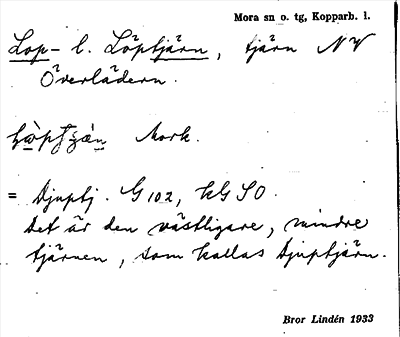 Mora sn o. tg, Kopparb. l.
Lop- l. Löptjärn, tjärn NV
Överlädern.
Mork.
= Djuptj. G 102, kG SO.
Det är den västligare, mindre
tjärnen, som kallas Djuptjärn.
Bror Lindén 1933